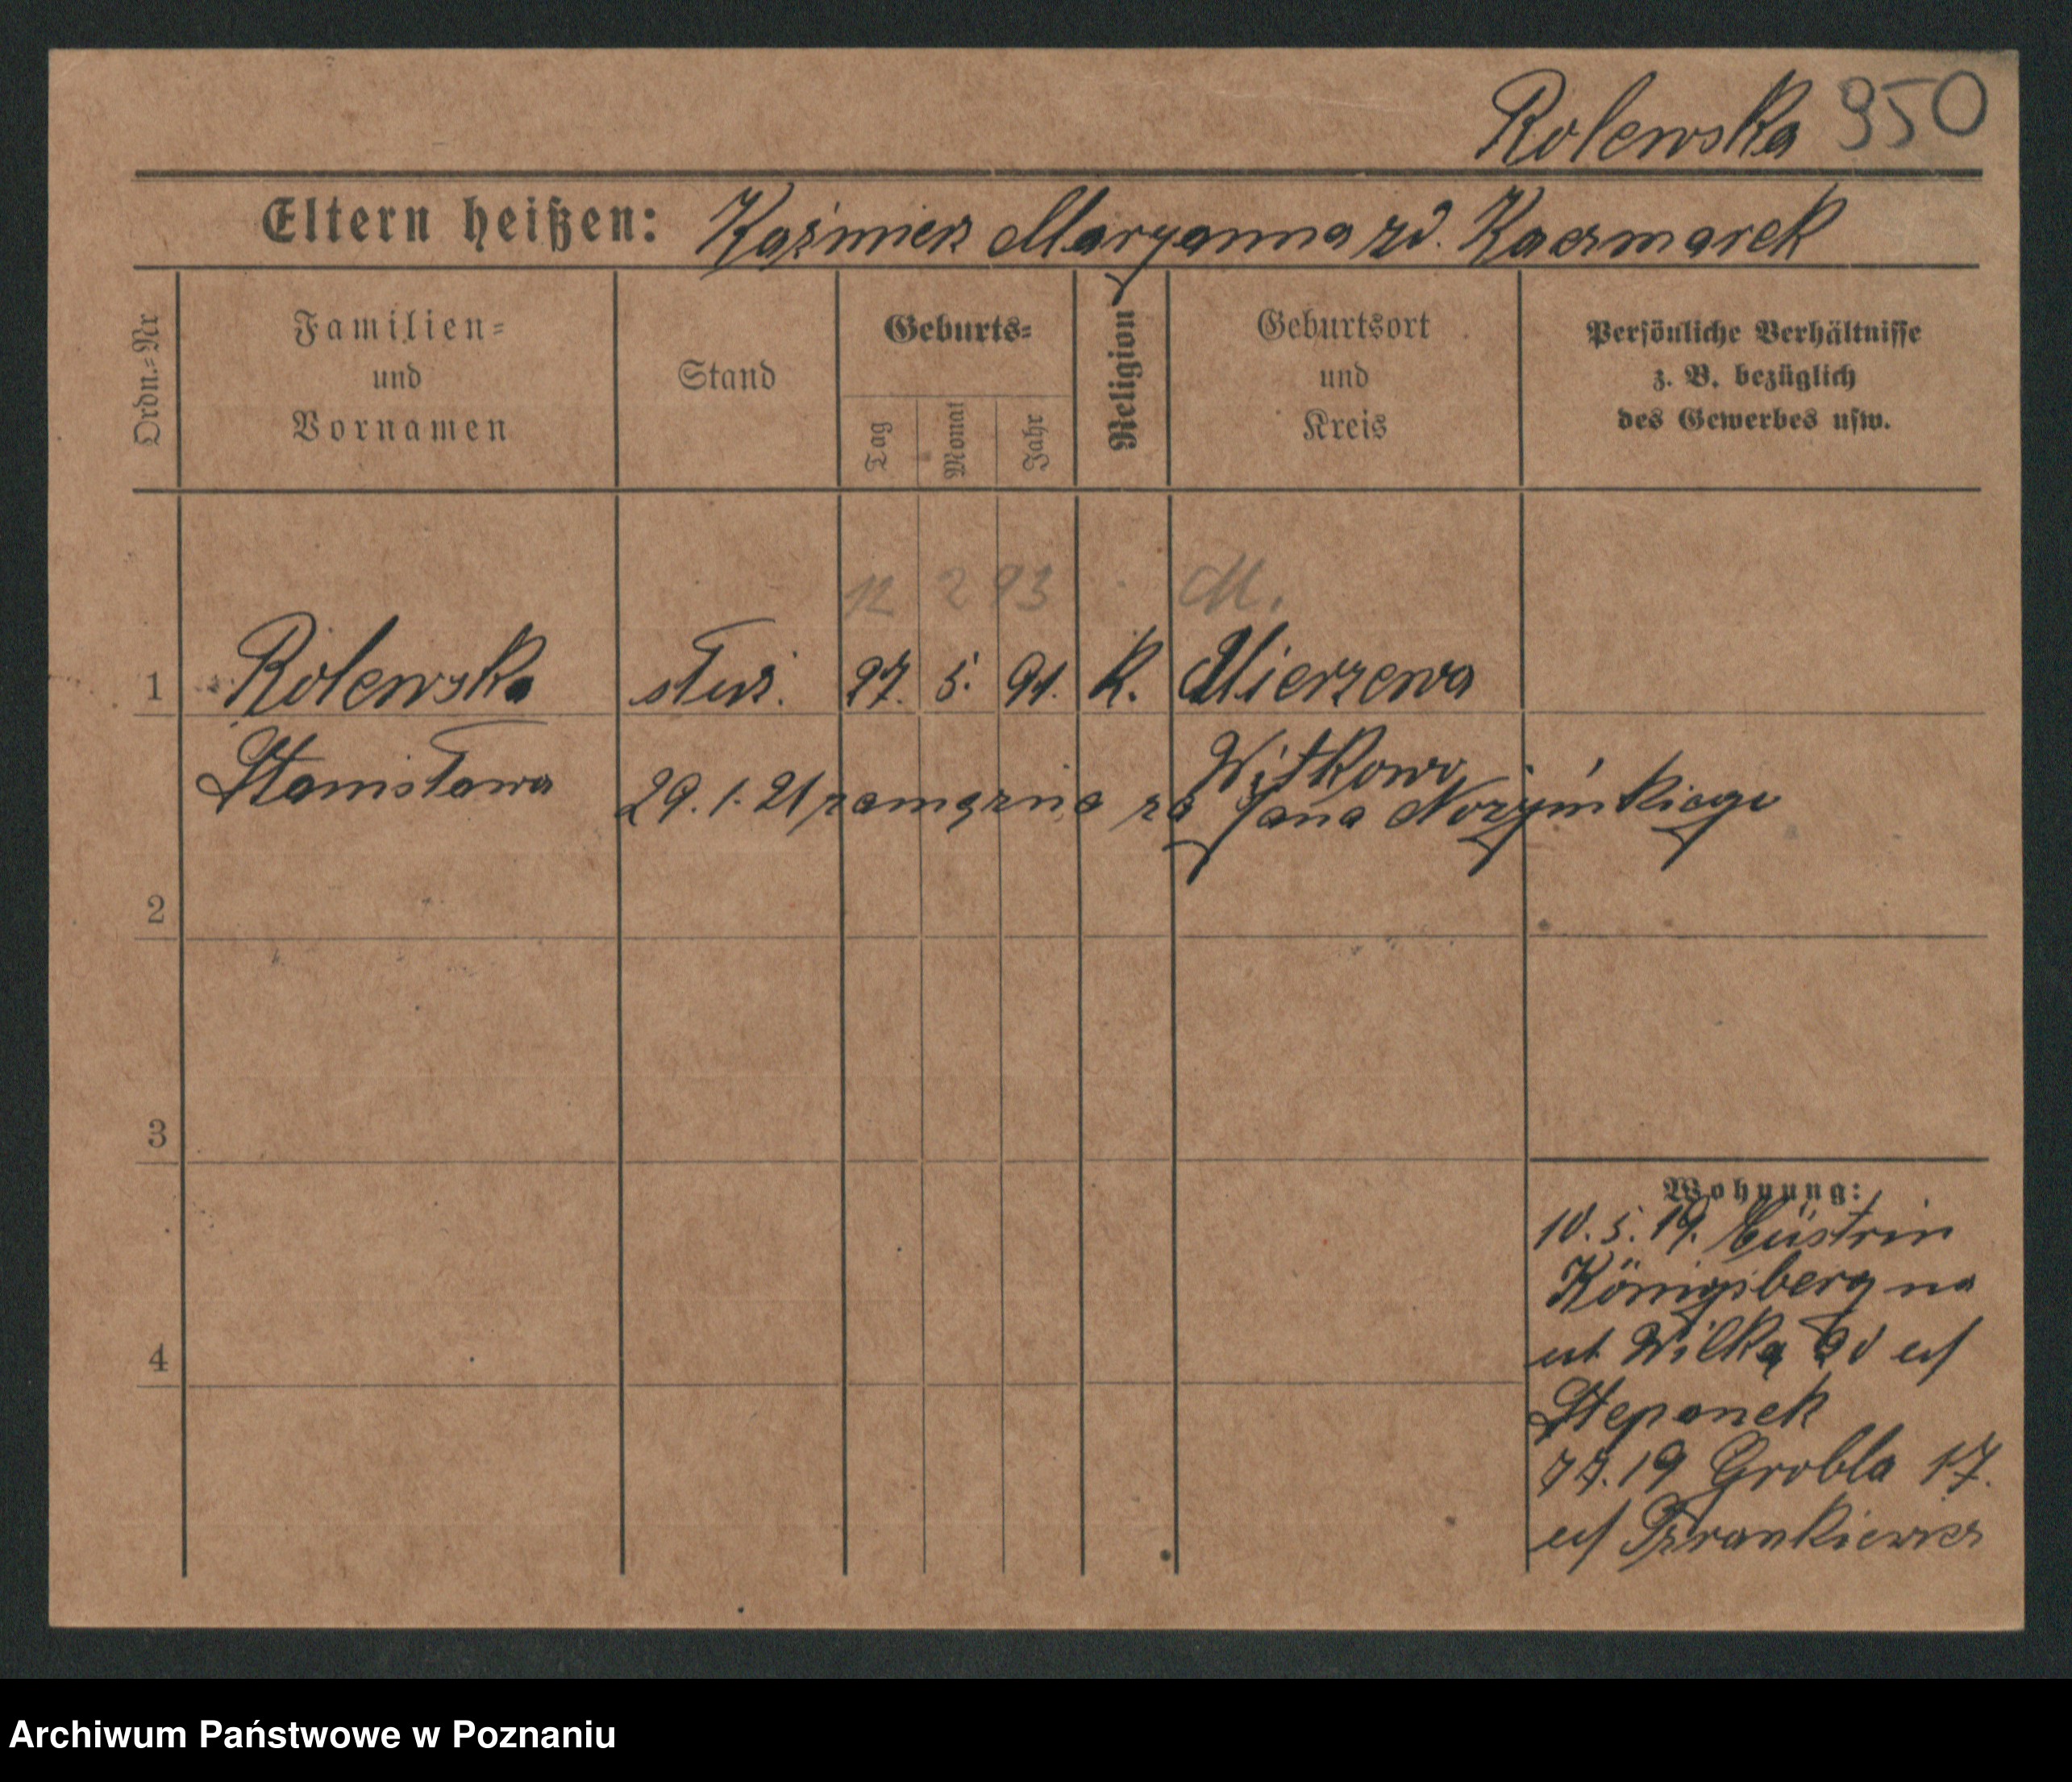 Rolewska 950
Eltern heißen: Kaźmierz Maryanna zd. Kaczmarek
Ordn.=Nr
Familien=
und
Vornamen
Stand
Geburts=
Tag
Monat
Jahr
Religion
Geburtsort
und
Kreis
Persönliche Verhältnisse
z. B. bezüglich
des Gewerbes usw.
12 2 93 M.
1 Rolewska służ. 27. 5. 91. K. Mierzewa
Stanisława Witkowo
29.1.21 zamężna za Jana
2
3
4
Wohnung:
10.5.19. Cüstrin
Königsberg na
Wilką
Stepanek
77.19 Grobla 17.
Archiwum Państwowe w Poznaniu